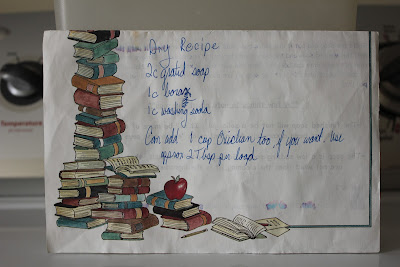 Dry Recipe
2c grated soap
1c borax
1c washing soda
Can add 1 cup Oxiclean too if you want. Use
approx 2 Tbsp per load
Temperature